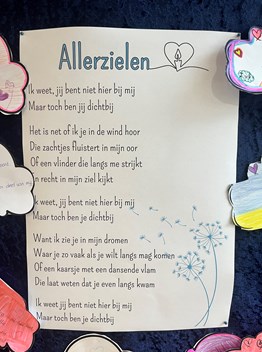 Allerzielen
Ik weet, jij bent niet hier bij mij
Maar toch ben jij dichtbij
Het is net of ik je in de wind hoor
Die zachtjes fluistert in mijn oor
Of een vlinder die langs me strijkt
En recht in mijn ziel kijkt
Ik weet, jij bent niet hier bij mij
Maar toch ben je dichtbij
Want ik zie je in mijn dromen
Waar je zo vaak als je wilt langs mag komen
Of een kaarsje met een dansende vlam
Die laat weten dat je even langs kwam
Ik weet, jij bent niet hier bij mij
Maar toch ben je dichtbij